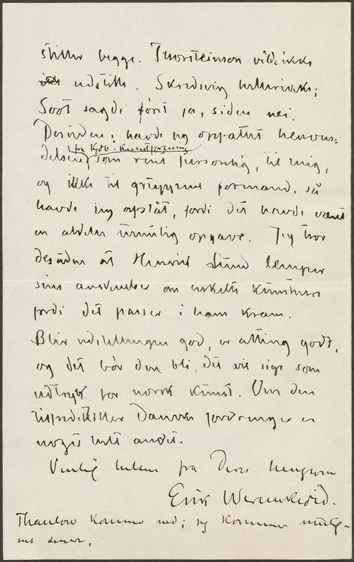 stiller begge. Thorsteinson vilde ikke
udstille. Skredsvig
Soot sagde først ja, siden nei.
Desuden; havde jeg opfattet henven-
delsen som rent personlig, til mig,
og ikke til gruppens formand, så
havde jeg afslåt, fordi det havde været
en altfor opgave. Jeg tror
desuden at Henrik Lund
sine an om enkelte kunstnere
fordi det passer i ham kram.
Blir udstillingen god, er alting godt,
og det bør den bli, det vil sige som
udtryk for norsk kunst. Om den
tilfredsstiller Danmarks fordringer er
noget helt andet.
Venlig hilsen fra Deres hengivne
Erik Werenskiold.
Thaulow kommer ned; jeg kommer